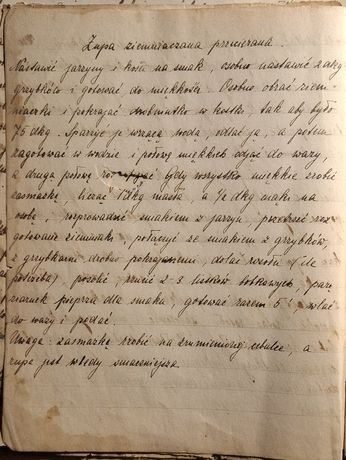 Zupa ziemniaczana przecierana.
Nastawić jarzyny i kości na smak, osobno nastawić 2 dkg
grzybków i gotować do miękkości. Osobno obrać ziem-
niaczki i pokrajać drobniutko w kostkę, tak aby było
75 dkg. Sparzyć je wrzącą wodą, odlać ją, a potem
zagotować w wodzie i połowę miękkich odjąć do wazy,
a drugą połowę Gdy wszystko miękkie zrobić
zasmażkę, licząc masła, a ½ dkg mąki na
osobę, rozprowadzić smakiem z jarzyn, przetrzeć roz-
gotowane ziemniaki, połączyć ze smakiem z grzybków,
z grzybkami drobno pokrajanemi, dolać rosołu (ile
potrzeba), posolić, wrzucić 2-3 listków bobkowych, parę
ziarnek pieprzu dla smaku gotować razem 5', wlać
do wazy i podać.
Uwaga: zasmażkę zrobić na zrumienionej cebulce, a
zupa jest wtedy smaczniejsza